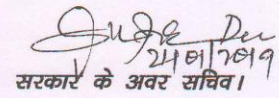 24/01/2019
सरकार के अवर सचिव।